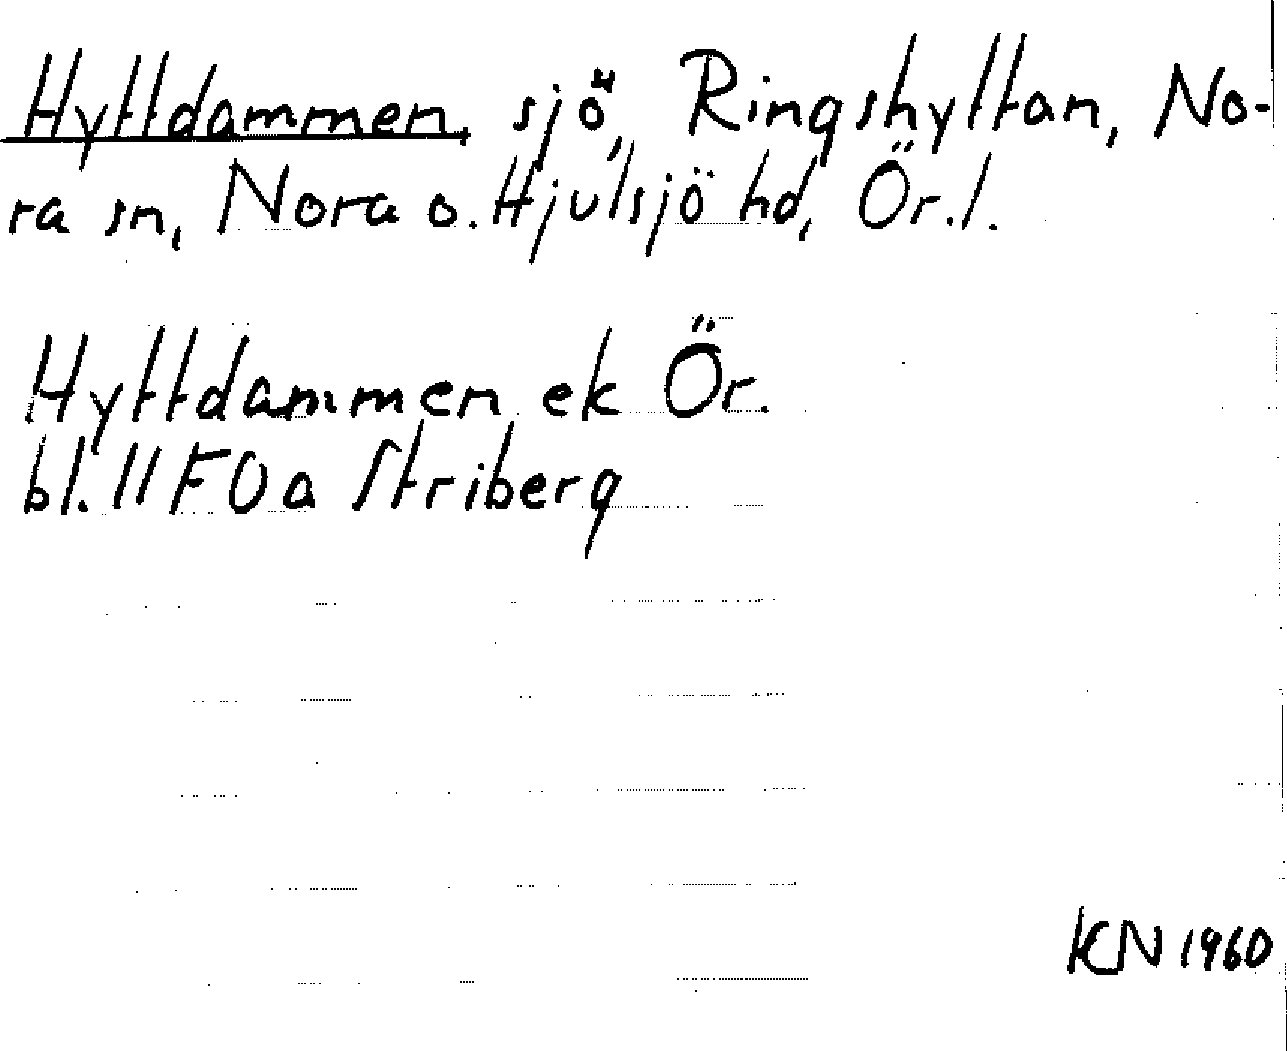 Hyttdammen, sjö, Ringshyttan, No-
ra sn, Nora o. Hjulsjö hd, Ör. l.
Hyttdammen ek Ör.
bl. 11F0a Striberg
KN 1960